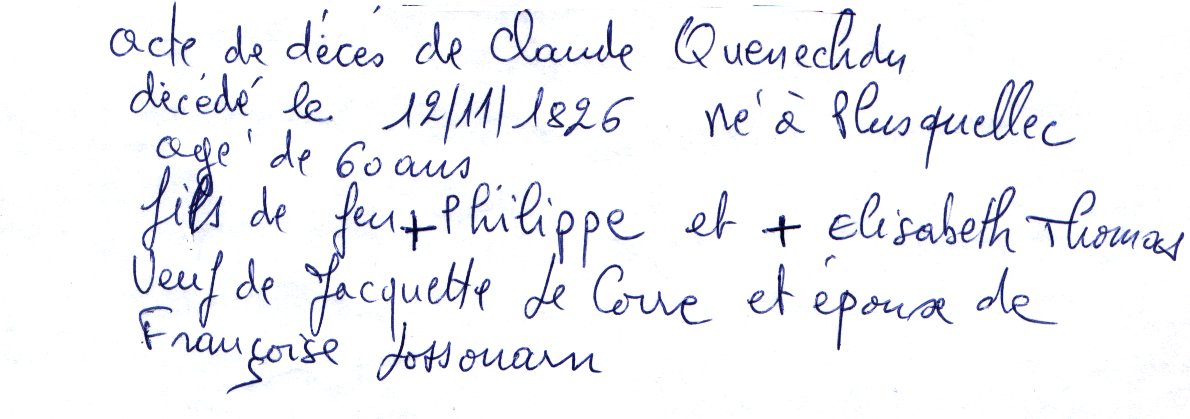 acte de décés de Claude Quenechdu
décédé le 12/11/1826 né à Plusquellec
agé de 60 ans
fils de feu + Philippe et + Elisabeth Thomas
Veuf de Jacquette Le Corre et époux de
Françoise Jossouarn